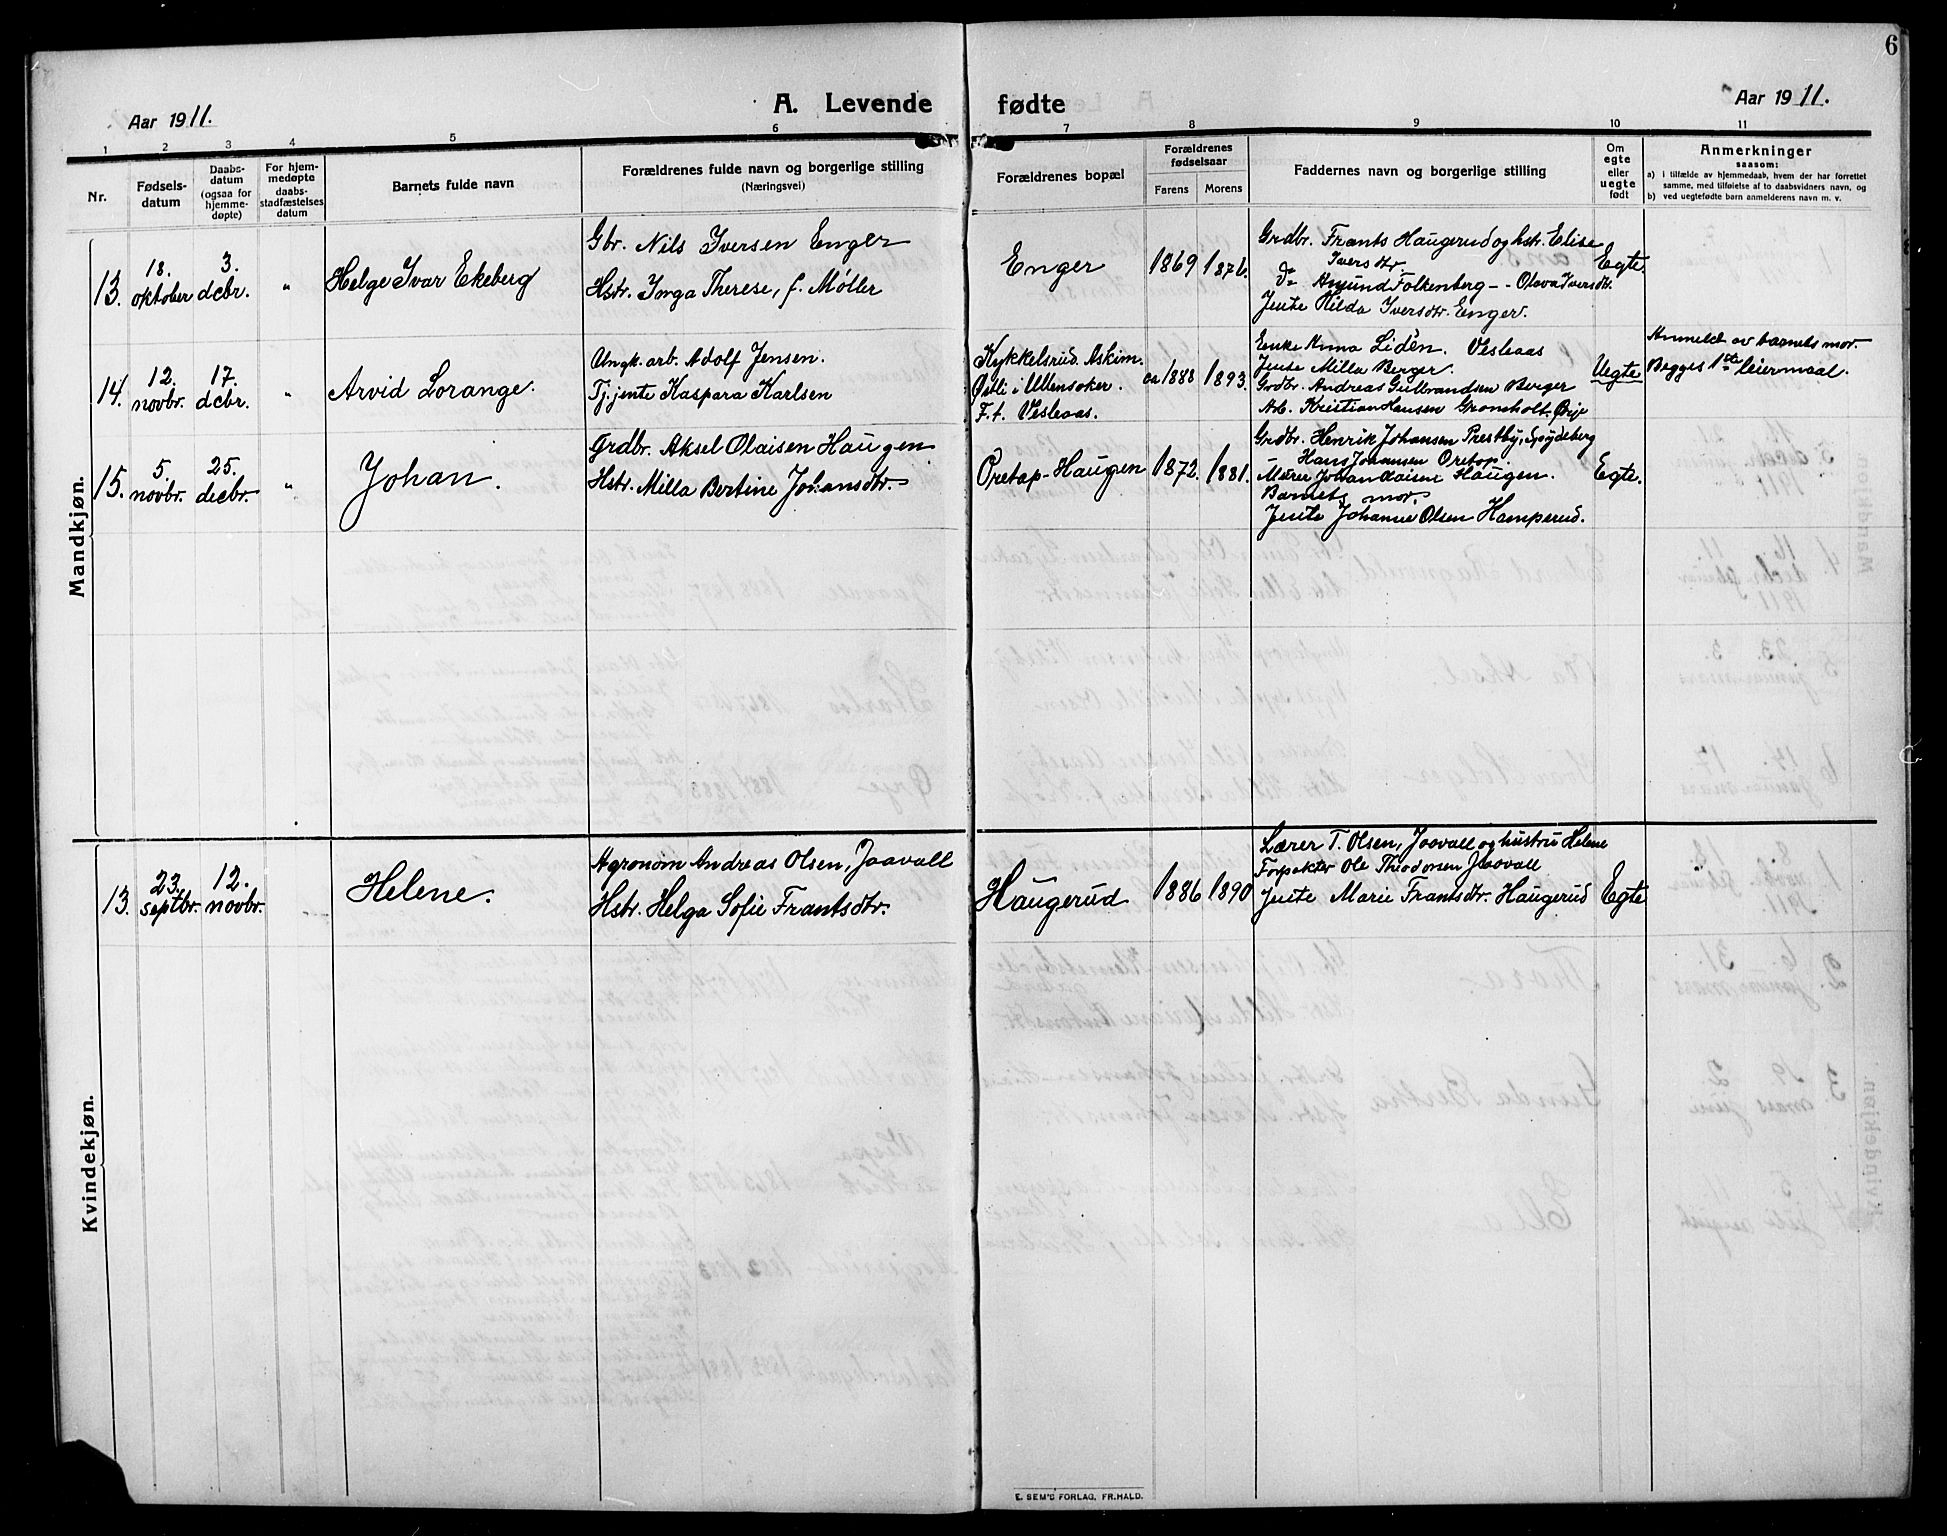 6
Aar 1911.
A. Levende fødte
Aar 1911.
1 2 3 4 5 6 7 8 9 10 11
Nr.
Fødsels-
datum
Daabs-
datum
(ogsaa for
hjemme-
døpte)
For hjem-
medøpte
daabs-
stadfæstelses
datum
Barnets fulde navn
Forældrenes fulde navn og borgerlige stilling
(Næringsvei)
Forældrenes bopæl
Forældrenes
fødselsaar
Farens Morens
Faddernes navn og borgerlige stilling
Om
egte
eller
uegte
født
Anmerkninger
saasom:
a) i tilfælde av hjemmedaab, hvem der har forrettet
samme, med tilføielse af to daabsvidners navn, og
b) ved uegtefødte børn anmelderens navn m. v.
Mandkjøn.
13.
18.
oktober
3.
dcbr.
"
Helge Ivar Ekeberg
Gbr. Nils Iversen Enger
Hstr. Inga Therese, f. Møller
Enger
1869 1876.
Grdbr. Frants Haugerud og hstr. Elise
Iversdtr.
do Amund Folkenberg - - Olava Iversdtr.
Jente Hilda Iversdtr. Enger.
Egte.
14.
12.
novbr.
17.
dcbr.
"
Arvid Lorange.
Ungk. arb. Adolf Jensen.
Tj. jente Kaspara Karlsen
Kykkelsrud Askim.
Østli i Ullensaker.
F. t. Vesleaas.
ca 1888 1893.
Enke Anna Lidén. Vesleaas
Jente Milla Berger.
Grdbr. Andreas Gulbrandsen Berger
Arb. Kristian Hansen Gronsholt. Ørje
Uegte
Anmeldt av barnets mor.
Begges 1ste leiermaal.
15.
5.
novbr.
25.
decbr.
"
Johan.
Grdbr. Aksel Olaisen Haugen
Hstr. Milla Bertine Johansdtr.
Øretop-Haugen
1872. 1881.
Grdbr. Henrik Johansen Prestby, Spydeberg
Hans Johansen Øretop
Murer Johan Olaisen Haugen.
Barnets mor.
Jente Johanne Olsen Hamperud.
Egte.
Kvindekjøn.
13.
23.
septbr.
12.
novbr.
Helene.
Agronom Andreas Olsen, Jaavall
Hstr. Helga Sofie Frantsdtr.
Haugerud
1886 1890
Lærer T. Olsen, Jaavall og hustru Helene
Forpakter Ole Theodorsen Jaavall
Jente Marie Frantsdtr. Haugerud
Egte
E. SEM'S FORLAG, FR.HALD.